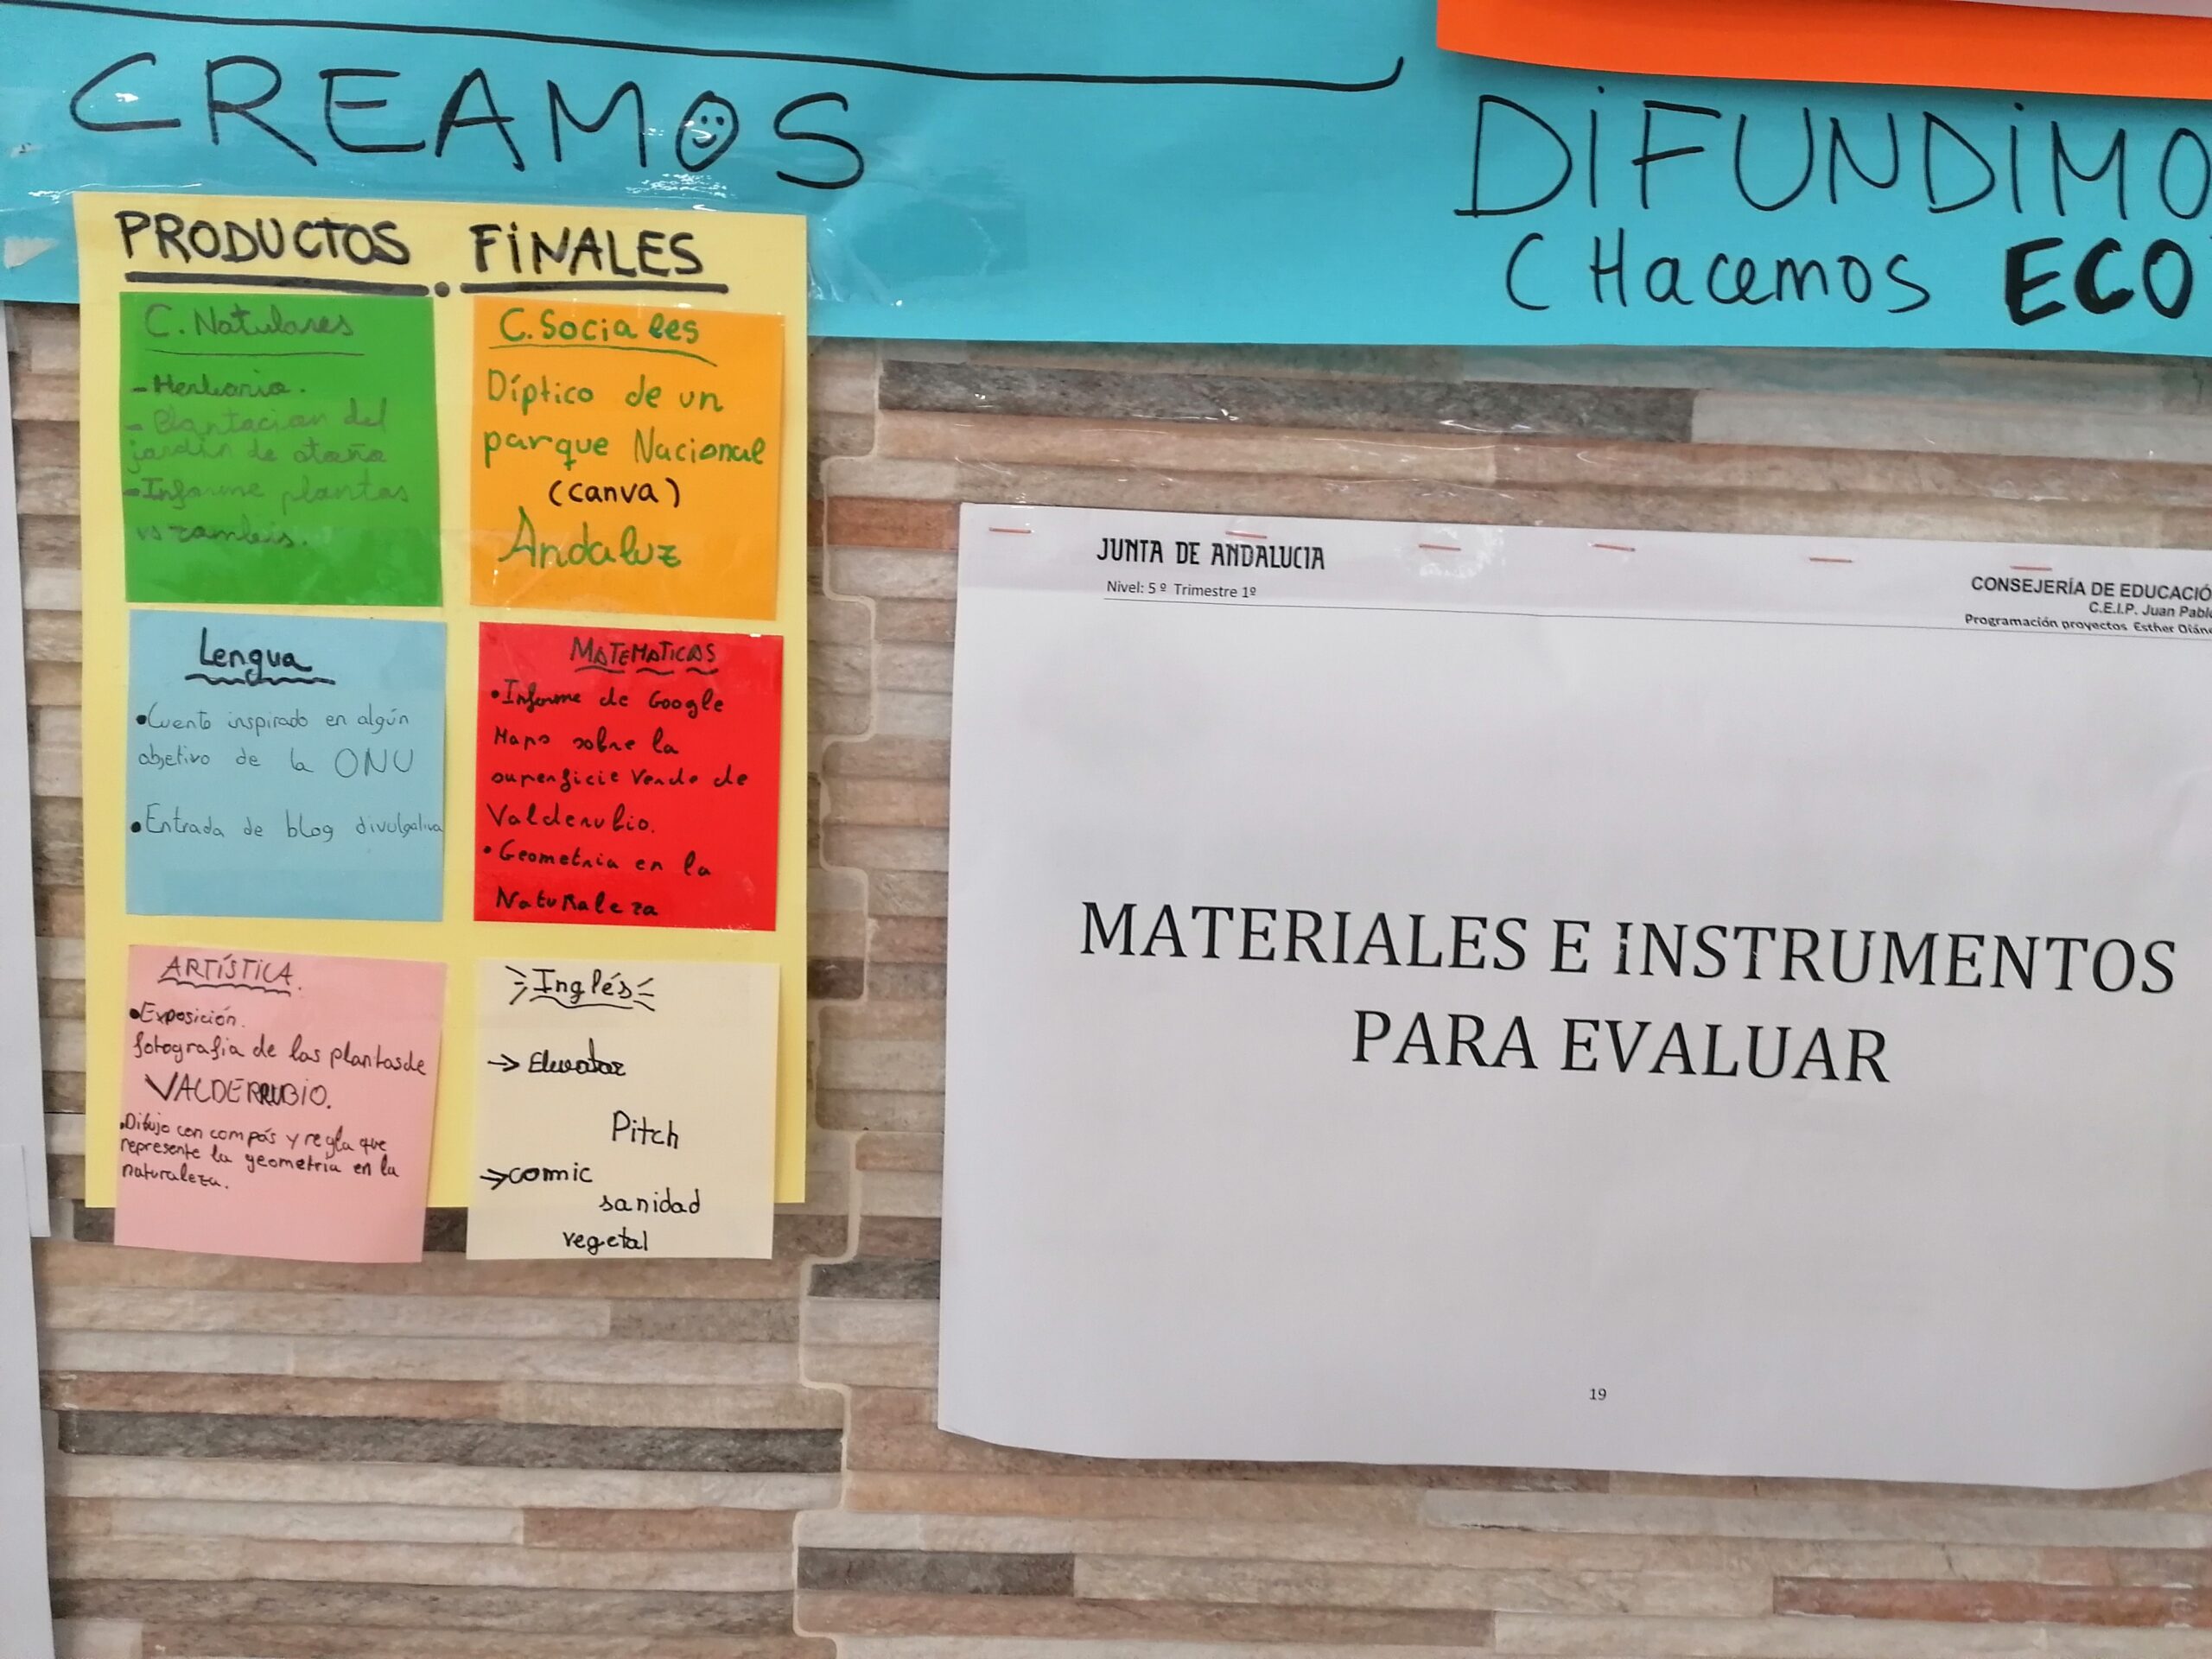 CREAMOS
PRODUCTOS FINALES
C. Naturales
- Herbario.
- Plantacion del
jardín de otoño
- Informe plantas
vs zombis.
C. Sociales
Díptico de un
parque Nacional
(canva)
Andaluz
Lengua
• Cuento inspirado en algún
objetivo de la ONU
• Entrada de blog divulgativa
MATEMATICAS
• Informe de Google
Maps sobre la
superficie Verde de
Valderrubio.
• Geometria en la
Naturaleza
ARTÍSTICA.
• Exposición.
fotografia de las plantas de
VALDERRUBIO.
• Dibujo con compás y regla que
represente la geometría en la
naturaleza.
Inglés
→ Elevator
Pitch
→ comic
sanidad
vegetal
DIFUNDIMO
(Hacemos ECO
JUNTA DE ANDALUCIA
Nivel: 5º Trimestre 1º
CONSEJERÍA DE EDUCACIÓ
C.E.I.P. Juan Pabl
Programación proyectos Esther
MATERIALES E INSTRUMENTOS
PARA EVALUAR
19